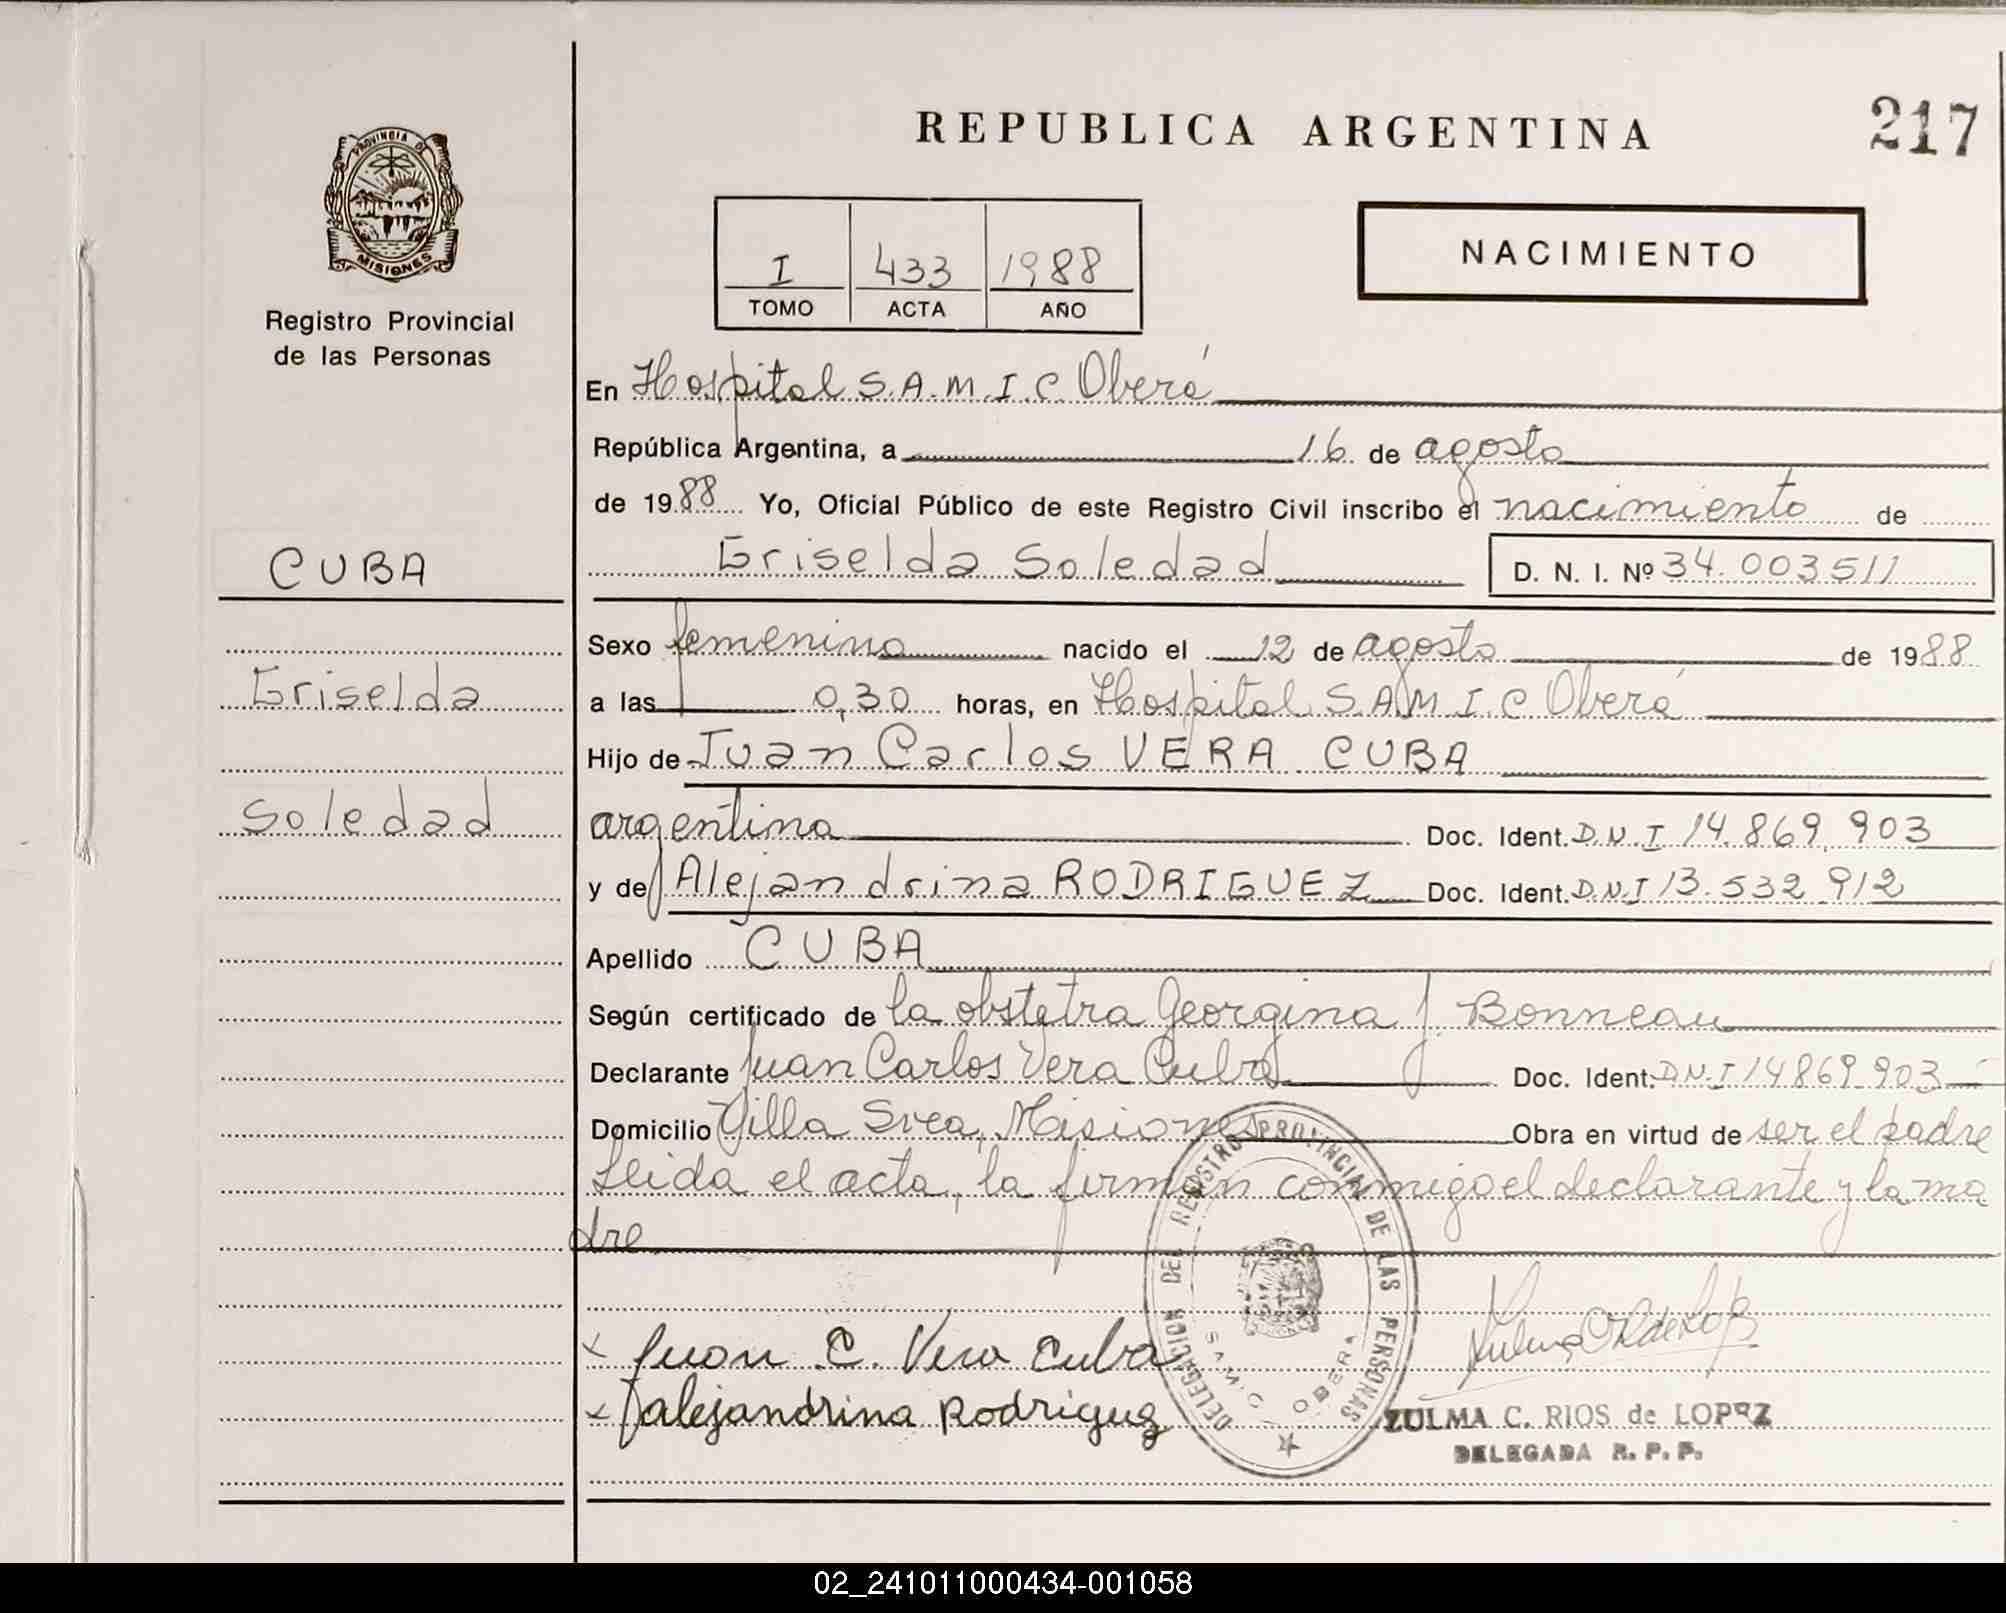 REPUBLICA ARGENTINA
217
PROVINCIA DE
MISIONES
Registro Provincial
de las Personas
I 433 1988
TOMO ACTA AÑO
NACIMIENTO
En Hospital S.A.M.I.C. Oberá
República Argentina, a 16 de agosto
de 1988 Yo, Oficial Público de este Registro Civil inscribo el nacimiento de
Griselda Soledad D. N. I. Nº 34.003511
CUBA
Griselda
Soledad
Sexo femenino nacido el 12 de agosto de 1988
a las 0,30 horas, en Hospital S.A.M.I.C Oberá
Hijo de Juan Carlos VERA CUBA
argentina Doc. Ident. D.N.I 14.869.903
y de Alejandrina RODRIGUEZ Doc. Ident. D.N.I 13.532.912
Apellido CUBA
Según certificado de la obstetra Georgina J. Bonneau
Declarante Juan Carlos Vera Cuba Doc. Ident. D.N.I 14869.903
Domicilio Villa Svea, Misiones Obra en virtud de ser el padre
Lleida el acta, la firman conmigo el declarante y la ma
dre
x Juan C. Vera Cuba
x alejandrina Rodriguez
DELEGACION DEL REGISTRO PROVINCIAL DE LAS PERSONAS
S.A.M.I.C. OBERA
ZULMA C. RIOS de LOPEZ
DELEGADA R. P. P.
02_241011000434-001058